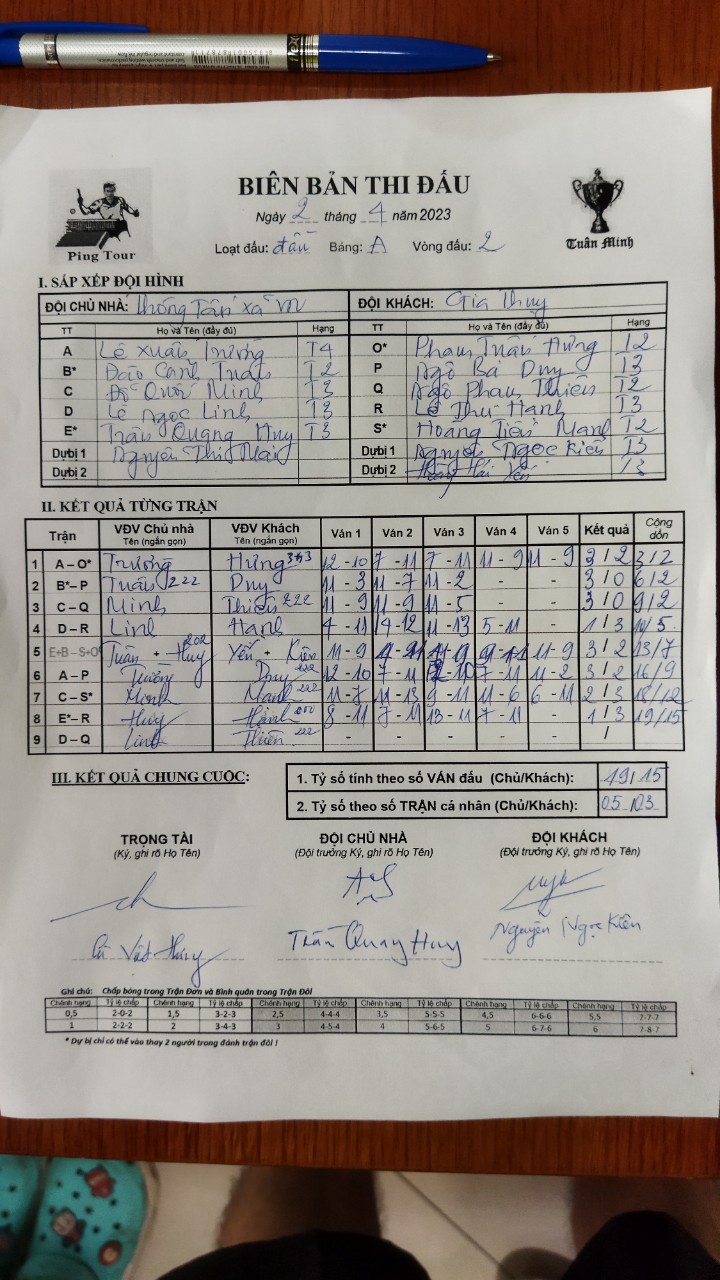 BIÊN BẢN THI ĐẤU
Ngày 2 tháng 4 năm 2023
Ping Tour
Loạt đấu: đấu Bảng: A Vòng đấu: 2
Tuân Minh
I. SẮP XẾP ĐỘI HÌNH
ĐỘI CHỦ NHÀ: Thông Tấn xã VN ĐỘI KHÁCH: Gia Thuỵ
TT Họ và Tên (đầy đủ) Hạng TT Họ và Tên (đầy đủ) Hạng
A Lê Xuân Trường T4 O* Phạm Tuấn Hưng T2
B* Đào Cảnh Tuấn T2 P Ngô Bá Duy T3
C Đỗ Quốc Minh T3 Q Ngô Phan Thiên T2
D Lê Ngọc Linh T3 R Lê Thu Hạnh T3
E* Trần Quang Huy T3 S* Hoàng Tiến Mạnh T2
Dự bị 1 Nguyễn Thị Mai Dự bị 1 Nguyễn Ngọc Kiên T3
Dự bị 2 Dự bị 2 Hải Yến 13
II. KẾT QUẢ TỪNG TRẬN
Trận VĐV Chủ nhà Tên (ngắn gọn) VĐV Khách Tên (ngắn gọn) Ván 1 Ván 2 Ván 3 Ván 4 Ván 5 Kết quả Cộng dồn
1 A – O* Trường Hưng 12 - 10 7 - 11 7 - 11 11 - 9 11 - 9 3 / 2 3/2
2 B* – P Tuấn 222 Duy 11 - 3 11 - 7 11 - 2 - - 3 / 0 6/2
3 C – Q Minh Thiên 222 11 - 9 11 - 9 11 - 5 - - 3 / 0 9/2
4 D – R Linh Hạnh 4 - 11 14 - 12 11 - 13 5 - 11 - 1 / 3
5 E+B – S+O Tuấn + Huy 202 Yến + Kiên 11 - 9 11 - 9 3 / 2 13/7
6 A – P Trường Duy 222 12 - 10 7 - 11 7 - 11 11 - 2 3 / 2 16/9
7 C – S* Minh Mạnh 222 11 - 7 11 - 13 9 - 11 11 - 6 6 - 11 2 / 3 18/12
8 E* – R Huy Hạnh 200 8 - 11 7 - 11 13 - 11 7 - 11 - 1 / 3 19/15
9 D – Q Linh Thiên 222 - - - - - /
III. KẾT QUẢ CHUNG CUỘC:
1. Tỷ số tính theo số VÁN đấu (Chủ/Khách): 19/15
2. Tỷ số theo số TRẬN cá nhân (Chủ/Khách): 05/03
TRỌNG TÀI ĐỘI CHỦ NHÀ ĐỘI KHÁCH
(Ký, ghi rõ Họ Tên) (Đội trưởng Ký, ghi rõ Họ Tên) (Đội trưởng Ký, ghi rõ Họ Tên)
Trần Quang Huy Nguyễn Ngọc Kiên
Ghi chú: Chấp bóng trong Trận Đơn và Bình quân trong Trận Đôi
Chênh hạng Tỷ lệ chấp Chênh hạng Tỷ lệ chấp Chênh hạng Tỷ lệ chấp Chênh hạng Tỷ lệ chấp Chênh hạng Tỷ lệ chấp Chênh hạng Tỷ lệ chấp
0,5 2-0-2 1,5 3-2-3 2,5 4-4-4 3,5 5-5-5 4,5 6-6-6 5,5 7-7-7
1 2-2-2 2 3-4-3 3 4-5-4 4 5-6-5 5 6-7-6 6 7-8-7
* Dự bị chỉ có thể vào thay 2 người trong đánh trận đôi !